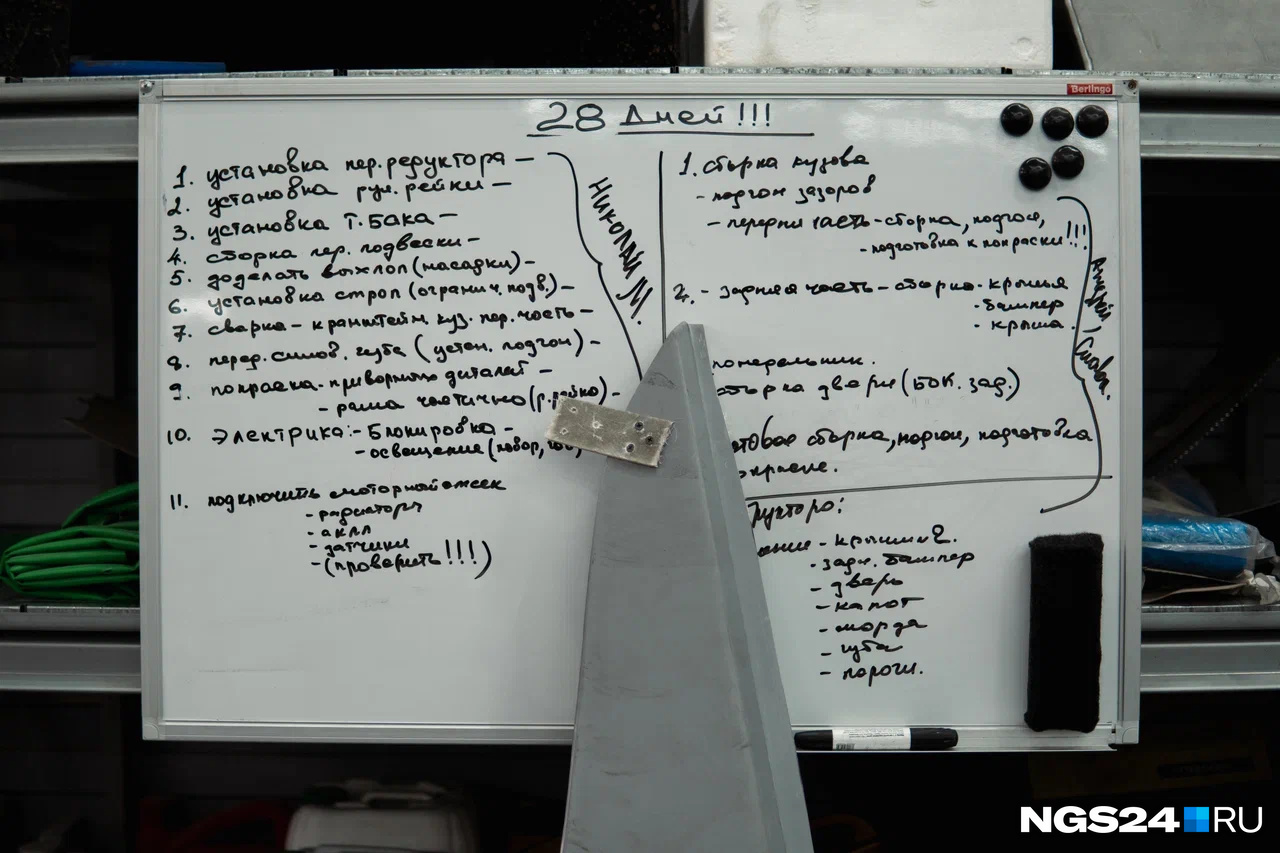 Berlingo
28 Дней!!!
1. установка пер. редуктора –
2. установка рул. рейки –
3. установка Т. Бака –
4. сборка пер. подвески –
5. доделать выхлоп (насадки) –
6. установка строп (огранич. подв.) –
7. сварка – кранштейн. куз. пер. часть –
8. перед. силов. губа (устан. подгон) –
9. покраска – приворными деталей –
– рама частично (р. рейка) –
10. Электрика: – Блокировка –
– освещение (повор,
11. подключить моторный отсек
– радиаторы
– акпп
– датчики
– (проверить!!!)
Николай М.
1. сборка кузова
– подгон зазоров
– передняя часть – сборка, подгон,
– подготовка к покраски!!!
2. – задняя часть – сборка – крылья
– бампер
– крыша.
понедельник.
сборка двери (Бок. зад.)
сборка, подгон, подготовка
Андрей, Слава.
– крылья 2.
– задн. бампер
– дверь
– капот
– морда
– губа
– пороги.
NGS24 RU